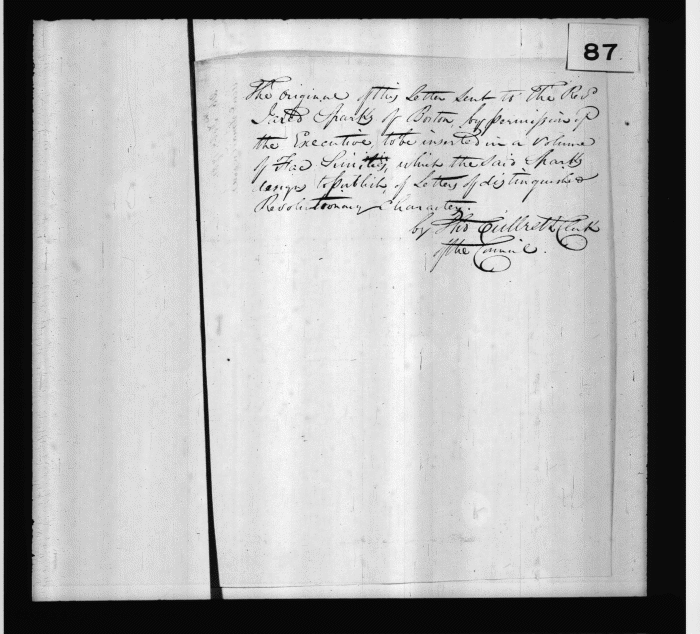 87
The original of this Letter sent to The Revd
Jared Sparks of Boston, by permission of
the Executive, to be inserted in a Volume
of Fac Similies, which the said Sparks
designs to publish, of Letters of distinguished
Revolutionary Character.
by Tho Culbreth Clerk
of the Council.